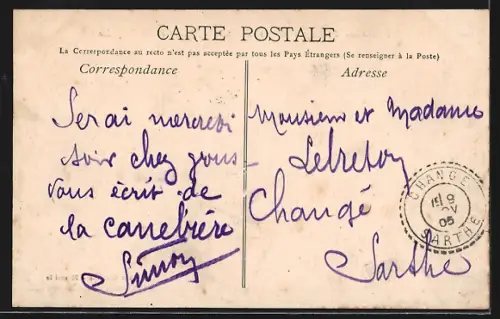 CARTE POSTALE
La Correspondance au recto n'est pas acceptée par tous les Pays Étrangers (Se renseigner à la Poste)
Correspondance
Serai mercredi
soir chez vous
Vous écrit de
la canebière
Simon
Adresse
Monsieur et Madame
Lebreton
Changé
Sarthe
CHANGÉ
05
SARTHE